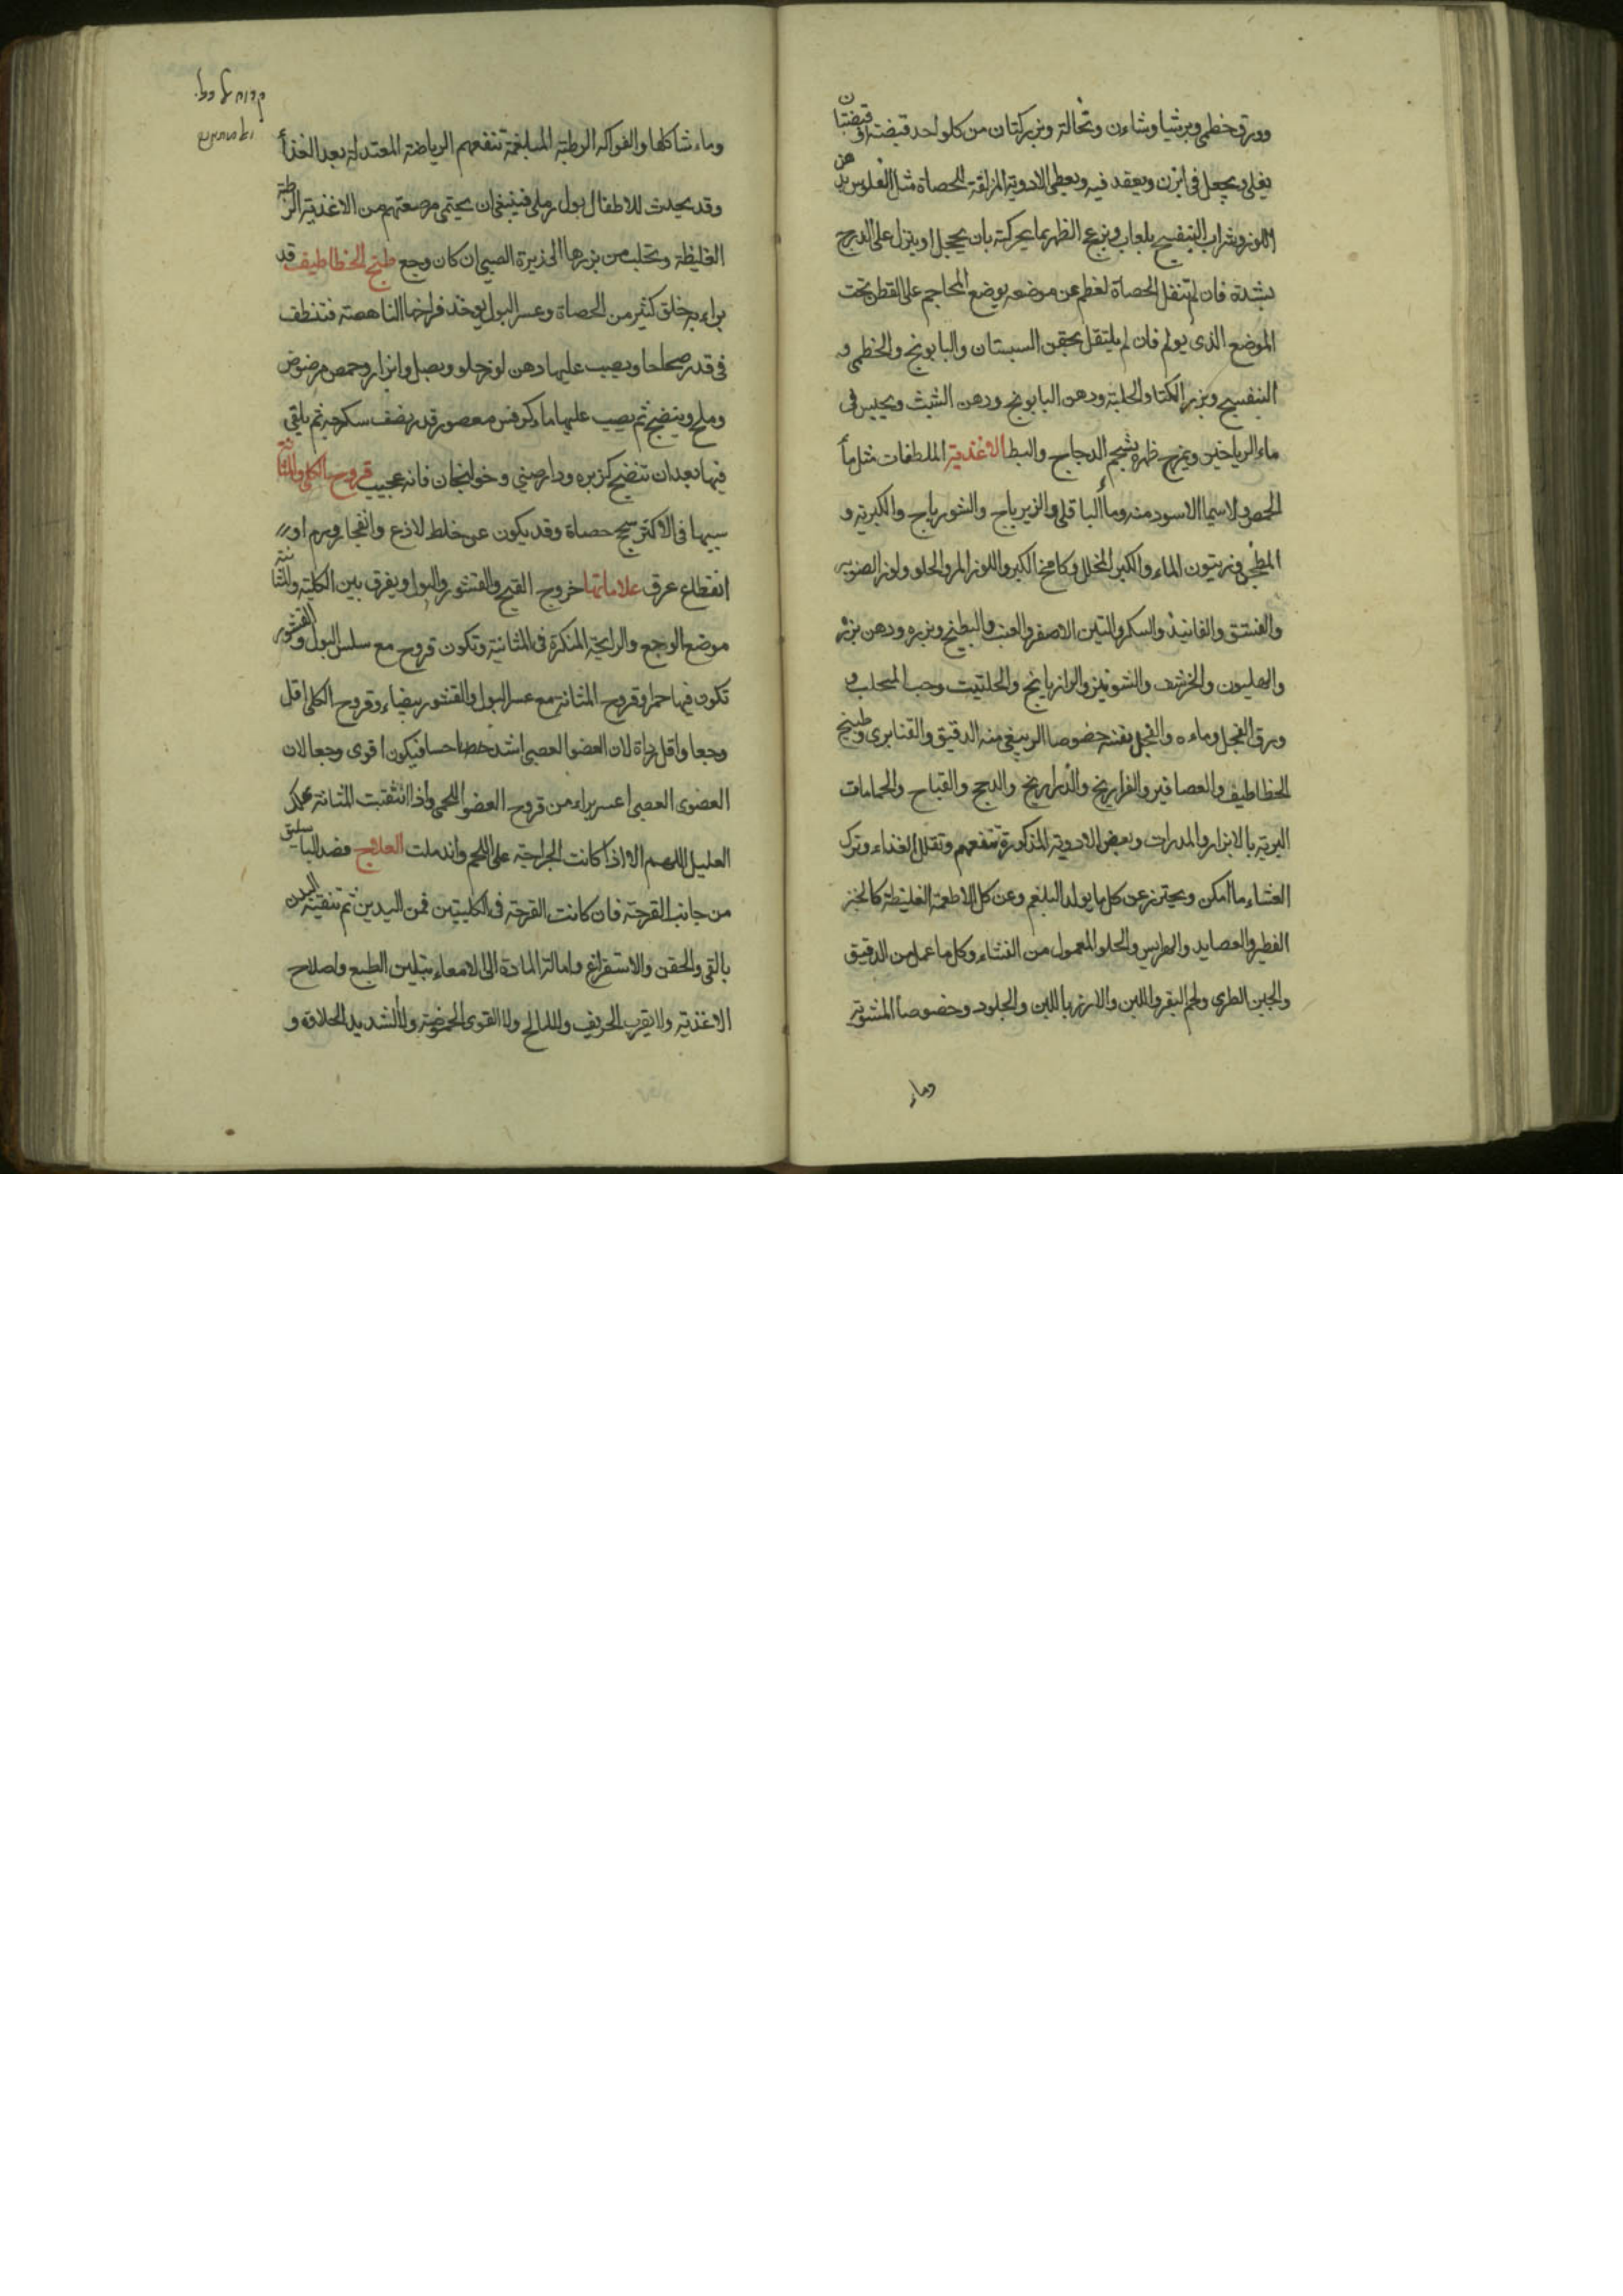 وورق خطمي وبرشيا وشاءن ونخالة وبزركتان من كلواحد قبضة او قبضتان
يغلي ويجعل في ابزن ويقعد فيه ويعطي الادوية المزلقة للحصاة مثل الفلوس بدهن
اللوز وشراب البنفسج بلعاب ويزعج الظهر بما يحركه بان يحجل او ينزل على الدرج
بشدة فان لم تنقل الحصاة لعظم عن موضعه يوضع المحاجم على القطن تحت
الموضع الذى يولم فان لم يلتقل يحقن السبستان والبابونج والخطمي و
البنفسج وبزر الكتا والحلبة ودهن البابونج ودهن الشبث ويحبس في
ماء الرياحين ويمرخ ظهره بشحم الدجاج والبط الاغذية الملطفات مثل ماء
الحمص ولاسيما الاسود منه وماء الباقلي والزيرباج والشورباج والكبرتيه و
المطجن وزيتون الماء والكبر المخلل وكامخ الكبر واللوز المر والحلو ولوز الصنوبر
والفستق والفانيذ والسكر والتين الاصفر والعنب والبطيخ وبزره ودهن بزره
والهليون والخرشف والشونيز والرازيانج والحلتيت وحب المحلب و
ورق الفجل وماءه والفجل نفسه خصوصا الربيعي منه الدقيق والقنابرى وطبيخ
الخطاطيف والعصافير والفراريخ والدراريج والدجج والقباج والحمامات
البرية بالابزار والمدرات وبعض الادوية المذكورة تنفعهم وتقليل الغذاء وترك
العشاء ما امكن ويحترز عن كل ما يولد البلغم وعن كل الاطعمة الغليظة كالخبز
الفطير والعصايد والهرايس والحلو المعمول من النشاء وكل ما عمل من الدقيق
والجبن الطرى ولحم البقر واللبن والارز باللبن والجلود وخصوصا المشوية
وماء
وماء شاكلها والفواكه الرطبة المبلغمة تنفعهم الرياضة المعتدلة بعد الغذاء
وقد يحدث للاطفال بول رملي فينبغي ان يحتمي مرضعتهم من الاغذية الرطبة
الغليظة وتحلب من بزرها الى ذيرة الصبي ان كان وجع طبخ الخطاطيف قد
براء به خلق كثير من الحصاة وعسر البول يوخذ فراخها الناهضة فتنظف
في قدر صحلحا ويصب عليها دهن لوز حلو وبصل وابزار وحمص مرضوض
وملح وينضج ثم يصب عليها ماء كرفس معصور قدر نصف سكرجه ثم يلقي
فيها بعد ان تنضج كزبره ودارصيني وخولنجان فانه عجيب قروح الكلي والمثانة
سببها في الاكثر سحج حصاة وقد يكون عن خلط لاذع وانفجار ورم او
انقطاع عرق علاماتها خروج القيح والقشور والبول ويفرق بين الكلية والمثانة
موضع الوجع والرايحة المنكرة في المثانية وتكون قروح مع سلس البول والقشور
تكون فيها حمر او قروح المثانة مع عسر البول والقشور بيضاء وقروح الكلي اقل
وجعا واقل رداة لان العضو العصبي اشد حسا فيكون اقوى وجعا لان
العضوى العصبي اعسر براء من قروح العضو اللحمي واذا انثقبت المثانة هلك
العليل اللهم الا اذا كانت الجراحة على اللحم واندملت العلاج فصد الباسليق
من جانب القرحة فان كانت القرحة في الكليتين فمن اليدين ثم تنقية البدن
بالقي والحقن والاستفراغ وامالة المادة الى الامعاء بتليين الطبع واصلاح
الاغذية ولا يقرب الحريف والمالح ولا القوى الحموضة ولا الشديد الحلاوة و